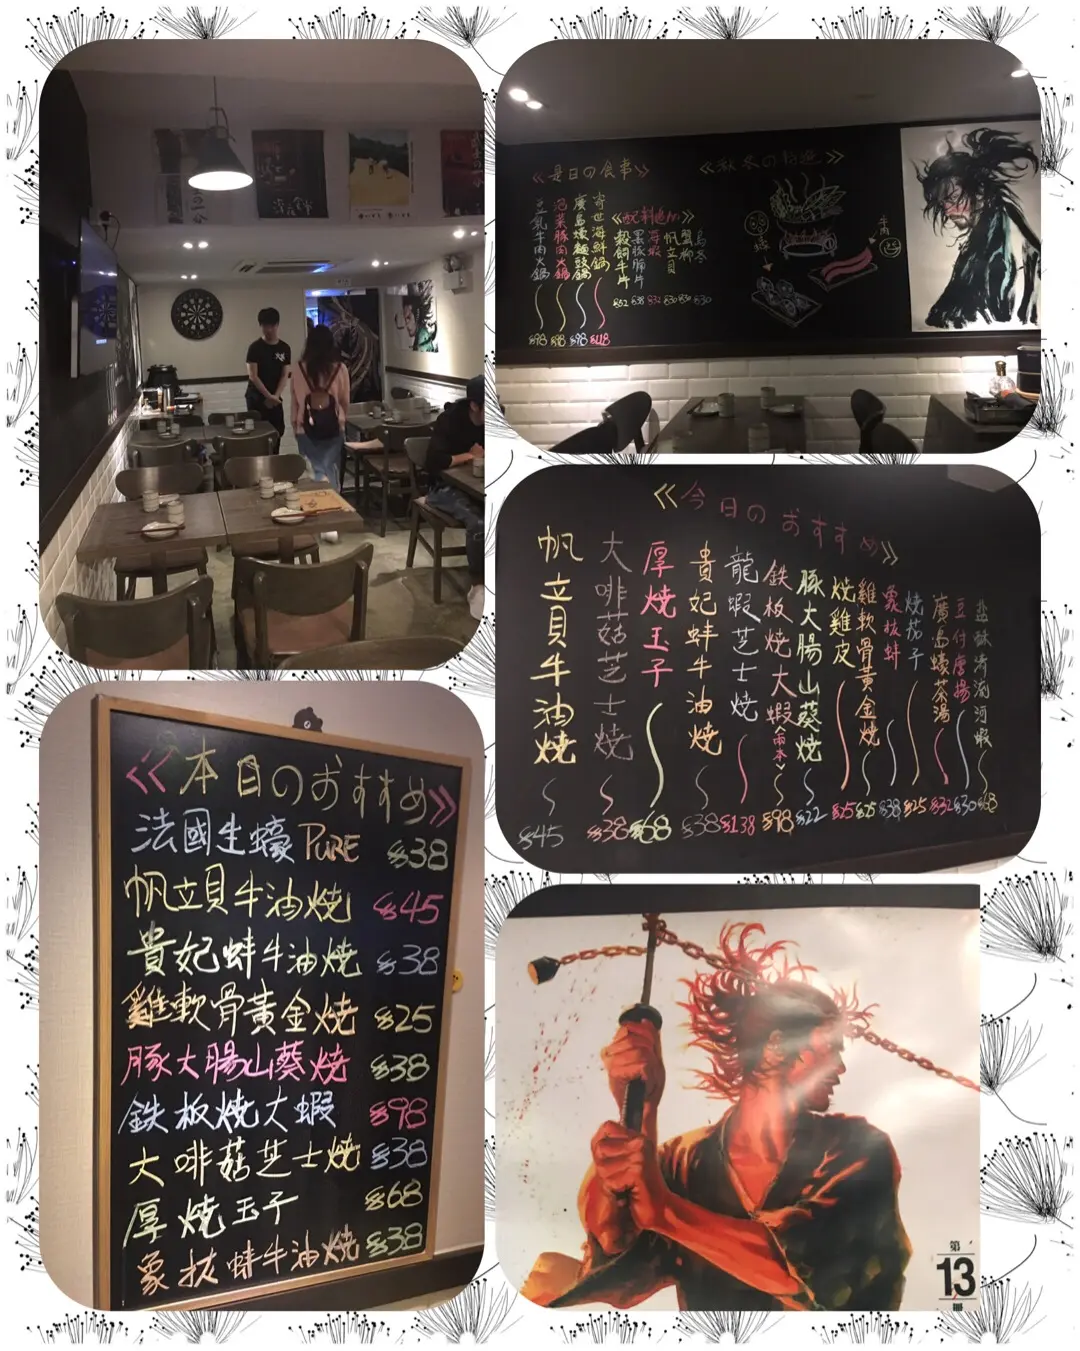 《是日の食事》
豆乳牛肉火鍋 $98
泡菜豚肉火鍋 $98
廣島蠔麵豉鍋 $98
寄世海鮮鍋 $118
《配料追加》
穀飼牛片 $52
黑豚腩片 $38
海蝦 $32
帆立貝 $30
蟹柳 $30
烏冬 $30
《秋冬の精選》
牛肉
《今日のおすすめ》
帆立貝牛油燒 $45
大啡菇芝士燒 $38
厚燒玉子 $68
貴妃蚌牛油燒 $38
龍蝦芝士燒 $138
鉄板焼大蝦(兩本) $98
豚大腸山葵燒 $22
燒雞皮 $25
雞軟骨黃金燒 $25
象抜蚌 $38
燒茄子 $25
廣島蠔茶湯 $32
豆付唐揚 $30
河蝦 $68
《本日のおすすめ》
法國生蠔 PURE $38
帆立貝牛油燒 $45
貴妃蚌牛油燒 $38
雞軟骨黃金燒 $25
豚大腸山葵燒 $38
鉄板燒大蝦 $98
大啡菇芝士燒 $38
厚燒玉子 $68
象抜蚌牛油燒 $38
第
13